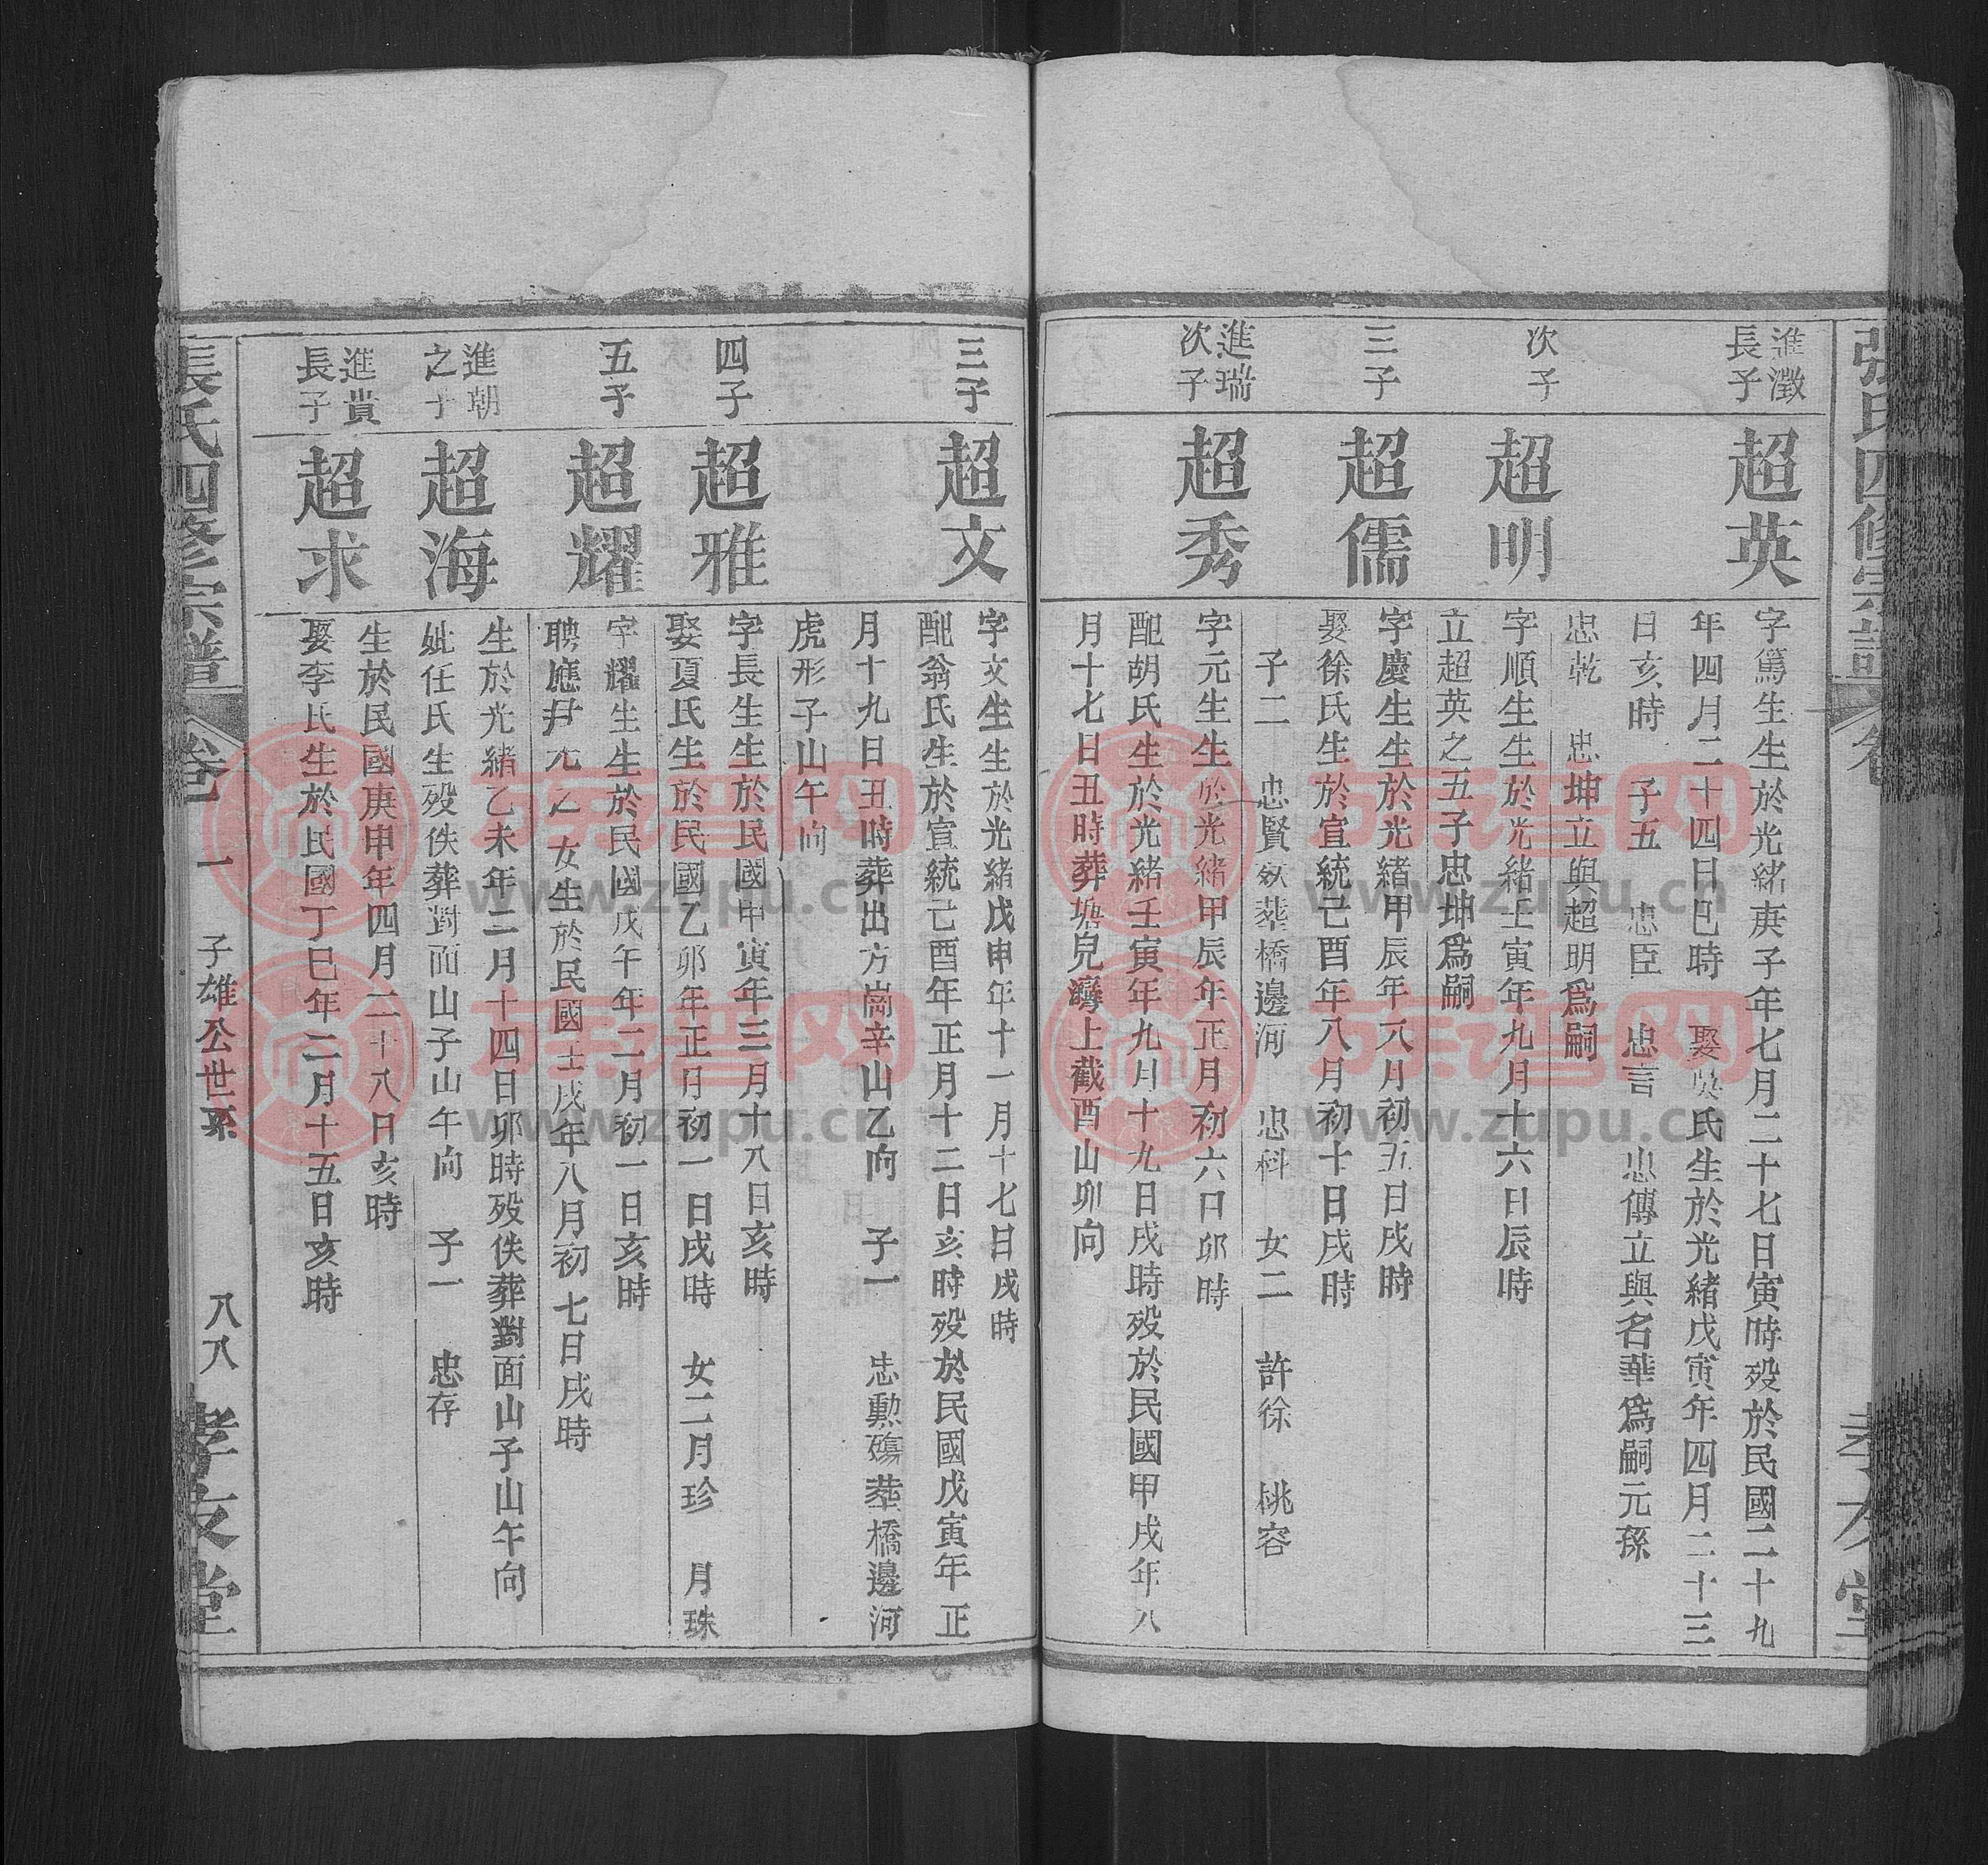 張氏四修宗譜
卷
孝友堂
進澂長子
超英
字篤生生於光緒庚子年七月二十七日寅時歿於民國二十九
年四月二十四日巳時　娶吳氏生於光緒戊寅年四月二十三
日亥時　子五　忠臣　忠言　忠傳立與名華爲嗣元孫
忠乾　忠坤立與超明爲嗣
次子
超明
字順生生於光緒壬寅年九月十六日辰時
立超英之五子忠坤爲嗣
三子
超儒
字慶生生於光緒甲辰年八月初五日戌時
娶徐氏生於宣統己酉年八月初十日戌時
子二　忠賢歿葬橋邊河　忠科　女二　許徐　桃容
進瑞次子
超秀
字元生生於光緒甲辰年正月初六日卯時
配胡氏生於光緒壬寅年九月十九日戌時歿於民國甲戌年八
月十七日丑時葬塘兒灣上截酉山卯向
三子
超文
字文生生於光緒戊申年十一月十七日戌時
配翁氏生於宣統己酉年正月十二日亥時歿於民國戊寅年正
月十九日丑時葬出方崗辛山乙向　子一　忠勲殤葬橋邊河
虎形子山午向
四子
超雅
字長生生於民國甲寅年三月十八日亥時
娶夏氏生於民國乙卯年正月初一日戌時　女二月珍　月珠
五子
超耀
字耀生生於民國戊午年二月初一日亥時
聘應尹元之女生於民國壬戌年八月初七日戌時
進朝之子
超海
生於光緒乙未年二月十四日卯時歿佚葬對面山子山午向
妣任氏生歿佚葬對面山子山午向　子一　忠存
進貴長子
超求
生於民國庚申年四月二十八日亥時
娶李氏生於民國丁巳年二月十五日亥時
張氏四修宗譜
卷一
子雄公世系
八八
孝友堂
族谱网
www.zupu.cn
族谱网
www.zupu.cn
族谱网
www.zupu.cn
族谱网
www.zupu.cn